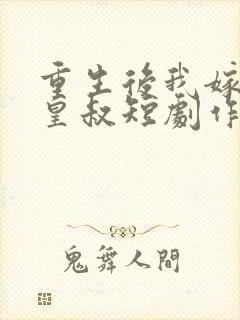 重生後我嫁
皇叔短劇作
鬼舞人間